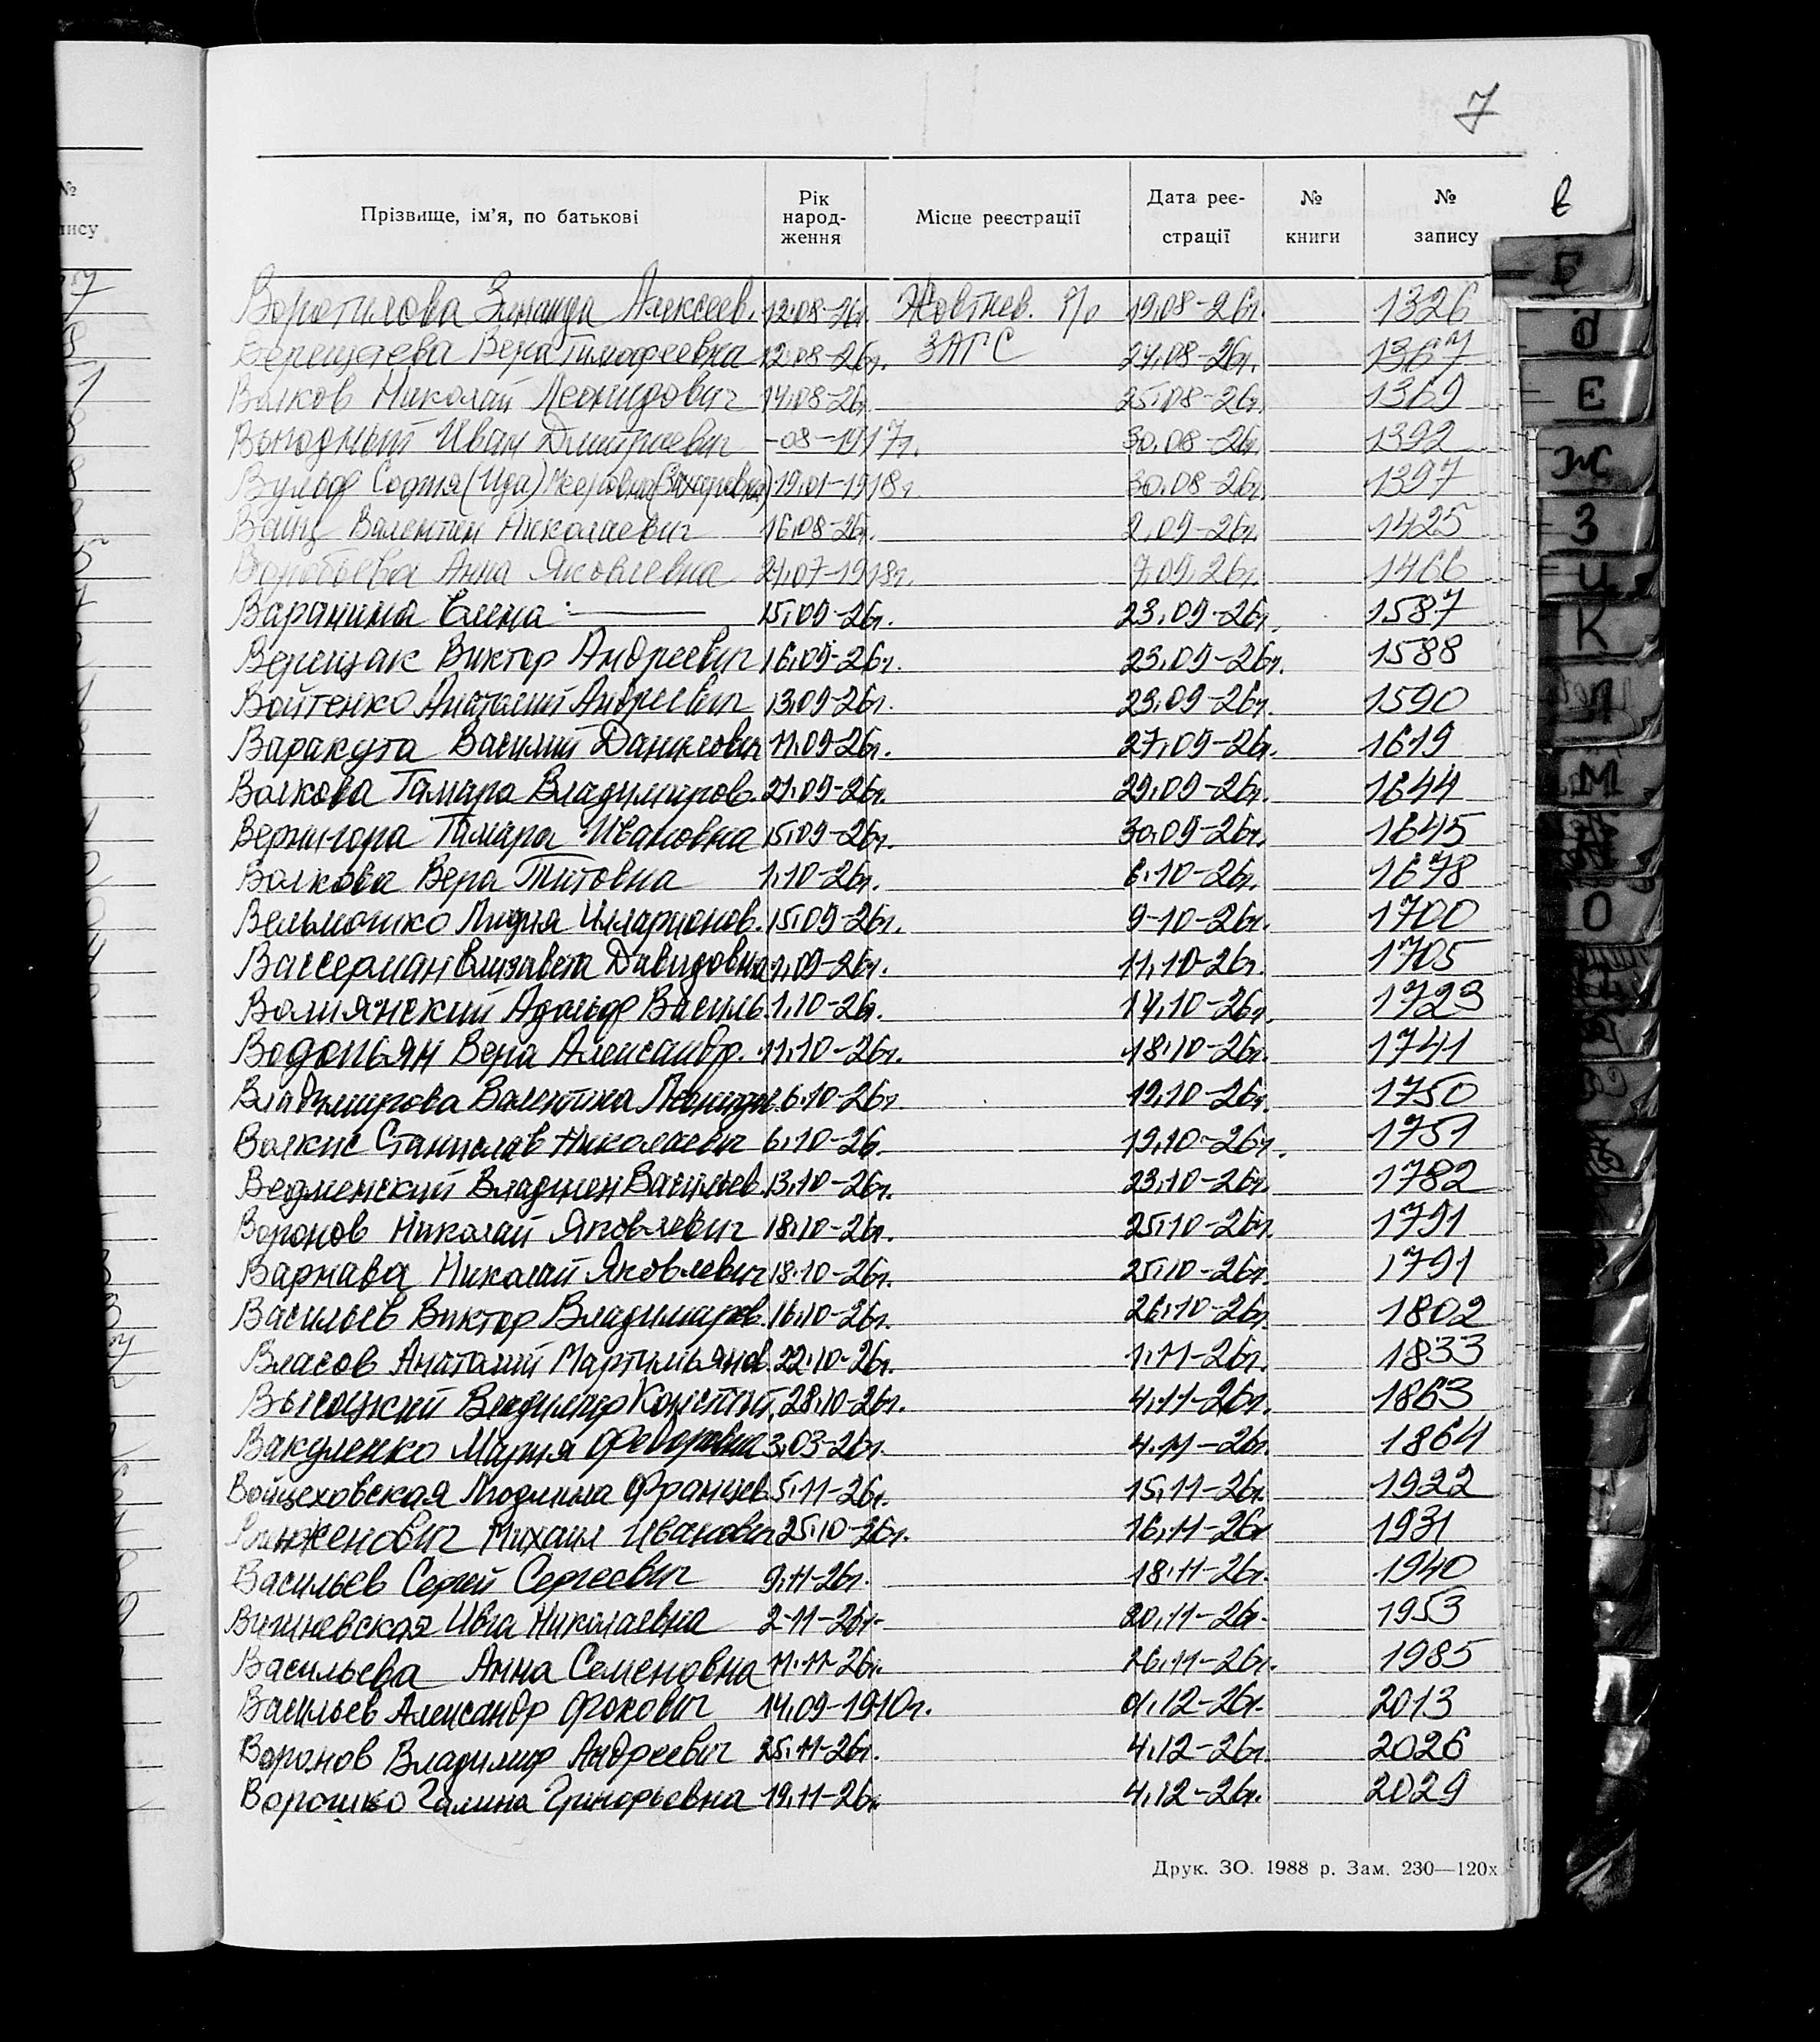 7
Прізвище, ім’я, по батькові Рік народ-ження Місце реєстрації Дата реє-страції № книги № запису
Воротилова Зинаида Алексеев. 12.08-26г. Жовтнев. р/о 19.08-26г. 1326
Верещаева Вера Тимофеевна 12.08-26г. ЗАГС 24.08-26г. 1367
Волков Николай Леонидович 14.08-26г. 25.08-26г. 1369
Выгодный Иван Дмитриевич -08-1917г. 30.08-26г. 1392
Вульф София (Ида) 19.01-1918г. 30.08-26г. 1397
Войц Валентин Николаевич 16.08-26г. 2.09-26г. 1425
Воробьева Анна Яковлевна 21.07-1918г. 7.09.26г. 1466
Варанина Елена 15.09-26г. 23.09-26г. 1587
Верещак Виктор Андреевич 16.09-26г. 23.09-26г. 1588
Войтенко Анатолий Андреевич 13.09-26г. 23.09-26г. 1590
Варакута Василий Данилович 11.09-26г. 27.09-26г. 1619
Волкова Тамара Владимиров. 21.09-26г. 29.09-26г. 1644
Вернигора Тамара Ивановна 15.09-26г. 30.09-26г. 1645
Волкова Вера Титовна 1.10-26г. 6.10-26г. 1678
Вельможко Лидия Илларионов. 15.09-26г. 9-10-26г. 1700
Вассерман Елизавета Давидовна 1.09-26г. 11.10-26г. 1705
Волянский Адольф Василь. 1.10-26г. 14.10-26г. 1723
Водопьян Вера Александр. 11.10-26г. 18.10-26г. 1741
Владимирова Валентина Леонидов. 6.10-26г. 19.10-26г. 1750
Волкис Станислав Николаевич 6.10-26. 19.10-26г. 1751
Ведменский Владилен Васильев. 13.10-26г. 23.10-26г. 1782
Воронов Николай Яковлевич 18.10-26г. 25.10-26г. 1791
Варнава Николай Яковлевич 18.10-26г. 25.10-26г. 1791
Васильев Виктор Владимиров. 16.10-26г. 26.10-26г. 1802
Власов Анатолий Мартильянов. 22.10-26г. 1.11-26г. 1833
Высоцкий Владимир Констант. 28.10-26г. 4.11-26г. 1863
Вакуленко Мария Федоровна 3.03-26г. 4.11-26г. 1864
Войцеховская Людмила Францев. 5.11-26г. 15.11-26г. 1922
Михаил Иванович 25.10-26г. 16.11-26г 1931
Васильев Сергей Сергеевич 9.11-26г. 18.11-26г. 1940
Вишневская Ивга Николаевна 2-11-26г. 20.11-26г. 1953
Васильева Анна Семеновна 11.11-26г. 26.11-26г. 1985
Васильев Александр Фокович 14.09-1910г. 01.12-26г. 2013
Воронов Владимир Андреевич 25.11-26г. 4.12-26г. 2026
Ворошко Галина Григорьевна 19.11-26г. 4.12-26г. 2029
Друк. ЗО. 1988 р. Зам. 230—120х
в
Д
Е
Ж
З
И
К
Л
М
О